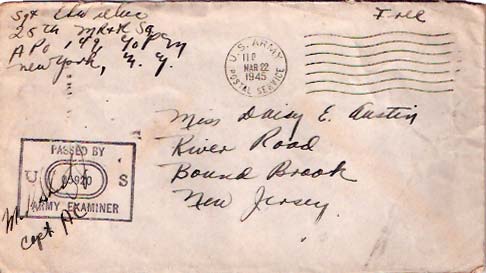 Sgt
28th
APO 149 % P.M.
New York, N.Y.
Free
U.S. ARMY
MAR 22
1945
POSTAL SERVICE
Miss Daisy E. Austin
River Road
Bound Brook
New Jersey
PASSED BY
U S
ARMY EXAMINER
Capt AC